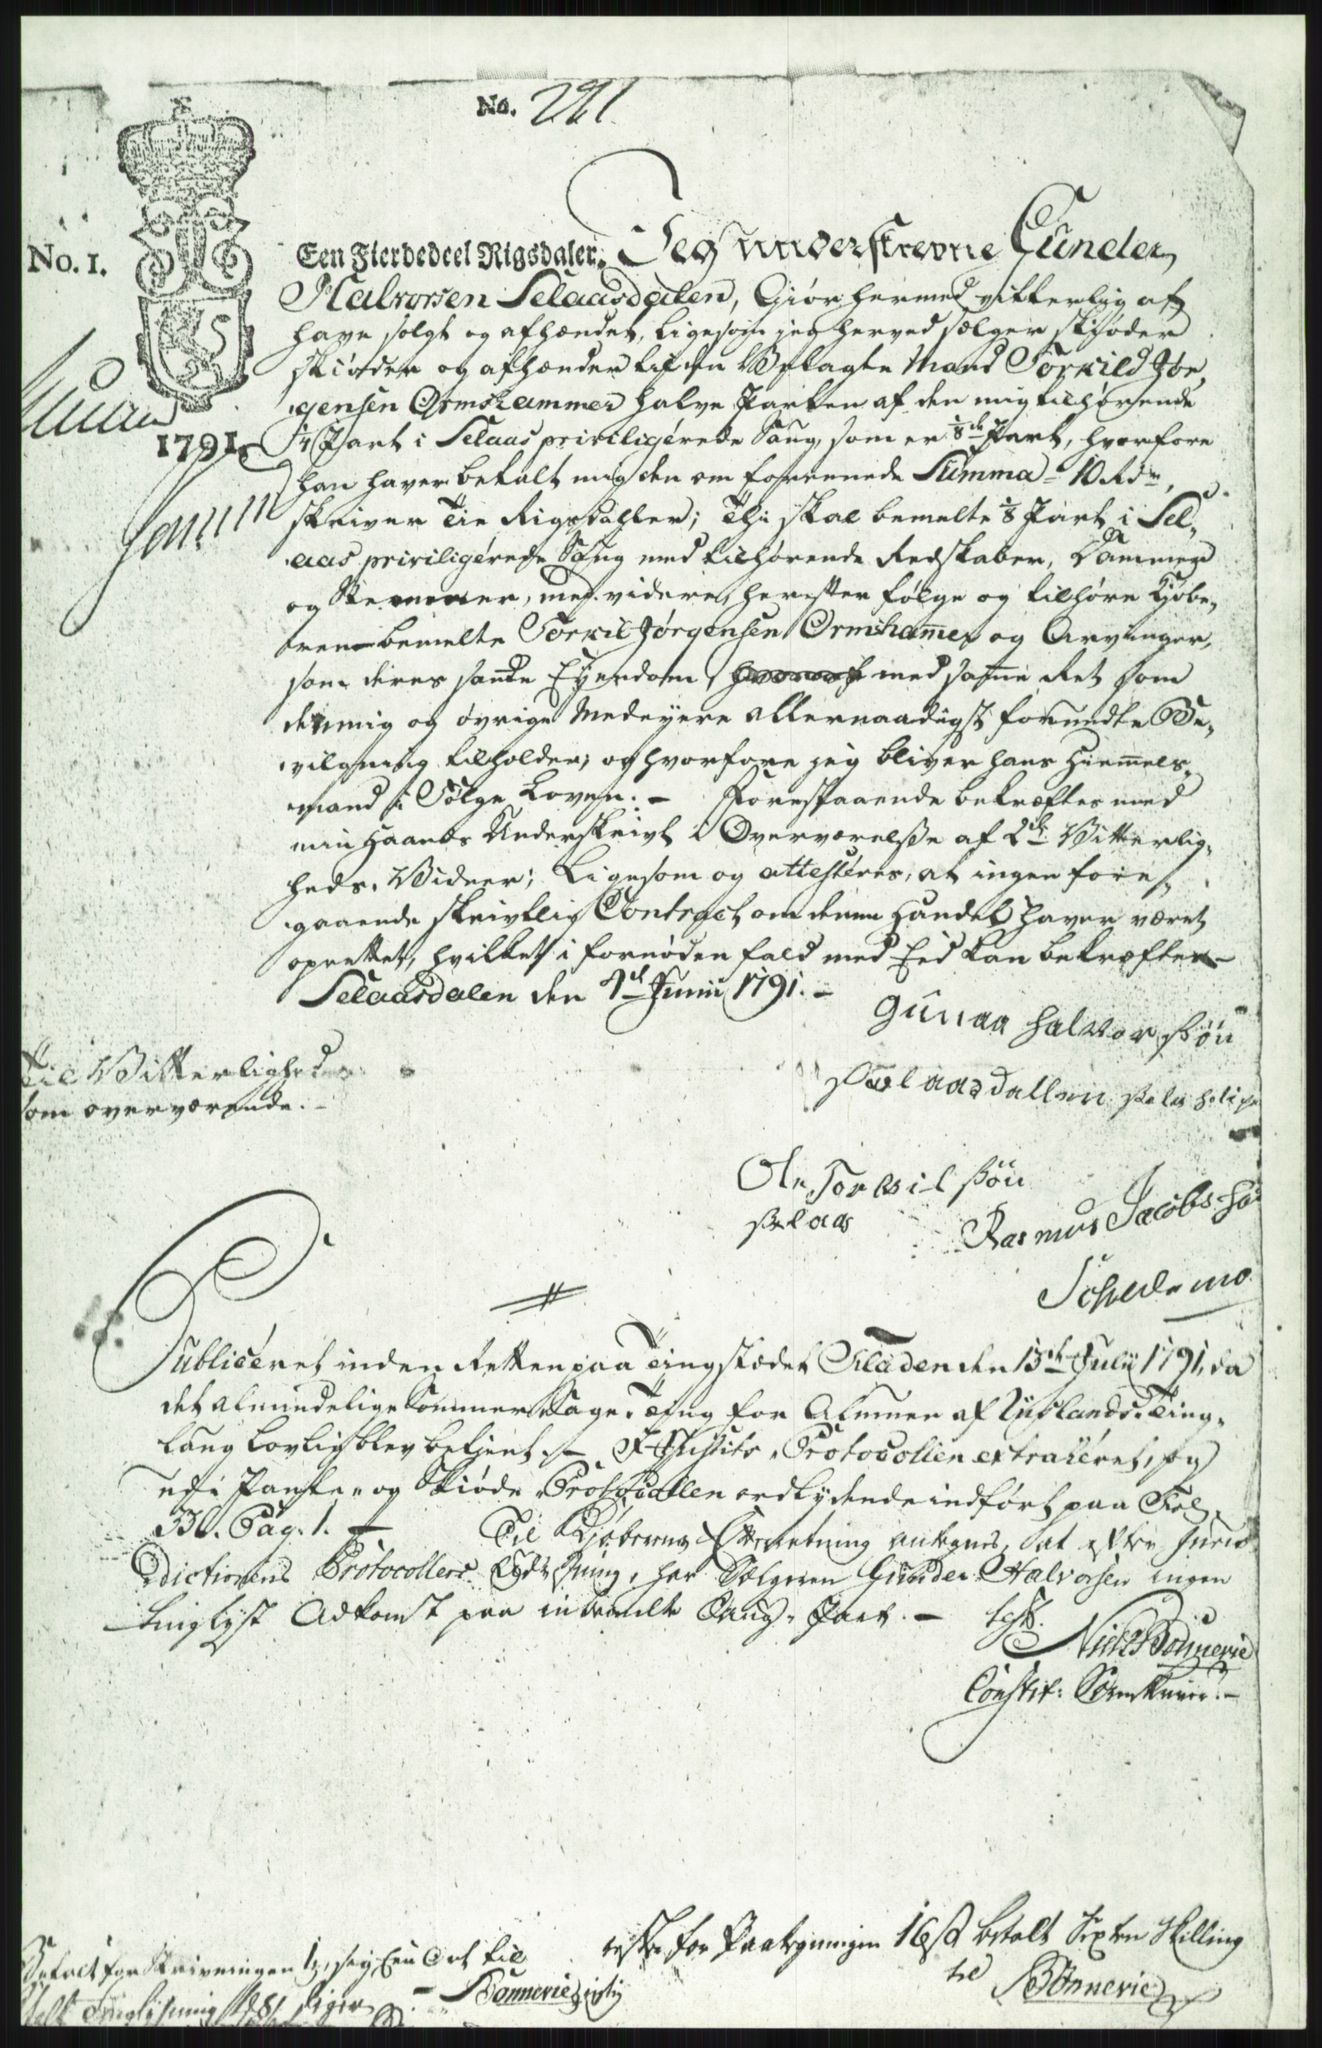 No. 221.
No. 1.
1791.
Een Fierdedeel Rigsdaler.
Jeg underskrevne Gunder
Halvorsen Selaasdalen, Giör hermed vitterlig at
have solgt og afhændet, ligesom jeg herved sælger skjøder
skiöder og afhænder til den Velagte Mand Torkild Jör
gensen Ormshammer halve Parten af den mig tilhørende
1/4 Part i Selaas priviligerede Saug, som er 1/8 Part, hvorfore
han haver betalt mig den om forenede Summa 10 Rdr,
skriver Tie Rigsdaller; Thi skal bemelte 1/8 Part i Sel-
aas priviligérede Saug med tilhørende Redskaber, Dammer
og Stemmer, med videre, herefter følge og tilhøre Kjøbe-
ren bemelte Torkil Jørgensen Ormshammer og Arvinger,
som deres sande Eyendom, med samme Ret som
den mig og øvrige Medeyere allernaadigst forundte Be-
vilgning tilholder; og hvorfore jeg bliver hans Hiemmels-
mand i Følge Loven. - Forestaaende bekræftes med
min Haands Underskrivt i Overværelse af 2de Vitterlig-
heds Vidner; Ligesom og attesteres, at ingen fore-
gaaende skrivtlig Contract om denne Handel haver været
oprettet, hvilket i fornøden fald med Eed kan bekræftes
Selaasdalen den 1st Junii 1791. -
Gunder halvor søn
Selaasdallen
Til Vitterlighed
som overværende. -
Ole Torkil søn
selaas
Rasmus Jacobs Sø
Schiede mo
Publiceret inden Retten paa Tingstædet Fladen den 13de Julii 1791, da
det almindelige Sommer Sage-Ting for Almuen af Ting-
laug lovlig blev betjent. - I Justits-Protocollen extraheret, og
udi Pante- og Skiøde Protocollen ordlydende indført paa Fol.
330. Pag. 1. - Til Kjøberens Efterretning antegnes, at efter Juris-
dictionens Protocollers Udvisning, har Sælgeren Gunder Halvorsen ingen
tinglyst Adkomst paa inbemelte Saug-Part. - test.
Niels Bonnevie
Constit: Sorenskriver. -
Betalt for Skrivningen 12, siger Een Ort til
Bonnevie
for Paategningen 16 s betalt Sexten Skilling
til Bonnevie